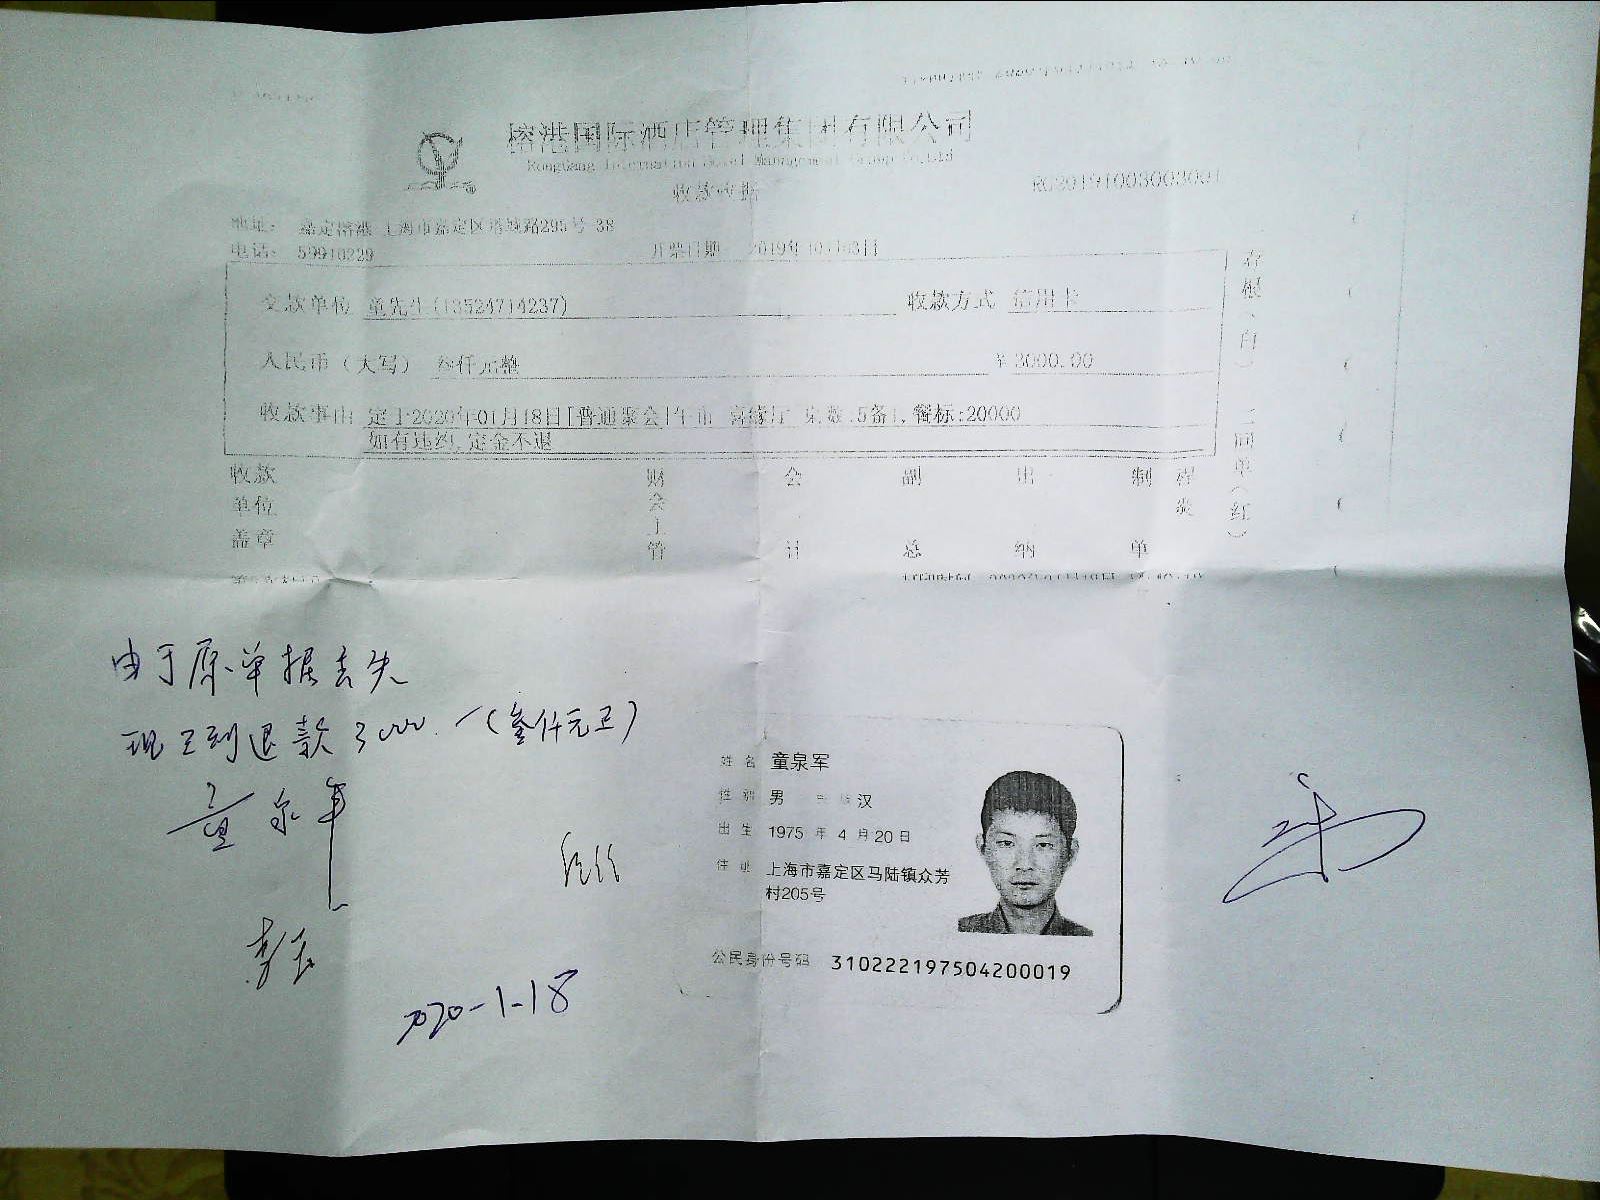 榕港国际酒店管理集团有限公司
RongGang International Hotel Management Group Co.,Ltd
收款收据
RG20191003003001
地址: 嘉定榕港 上海市嘉定区塔城路295号 38
电话: 59910229
开票日期 2019年10月03日
交款单位 童先生(13524714237)
收款方式 信用卡
人民币（大写） 叁仟元整
￥3000.00
收款事由 定于2020年01月18日[普通聚会]午市 喜缘厅 桌数:5备1, 餐标:20000
如有违约, 定金不退
收款单位盖章
财会主管
会计
副总
出纳
制单
程炎
存根（白） 二回单（红）
由于原单据丢失
现已到退款3000.-(叁仟元正)
童泉军
2020-1-18
姓名 童泉军
性别 男 民族 汉
出生 1975 年 4 月 20 日
住址 上海市嘉定区马陆镇众芳
村205号
公民身份号码 310222197504200019